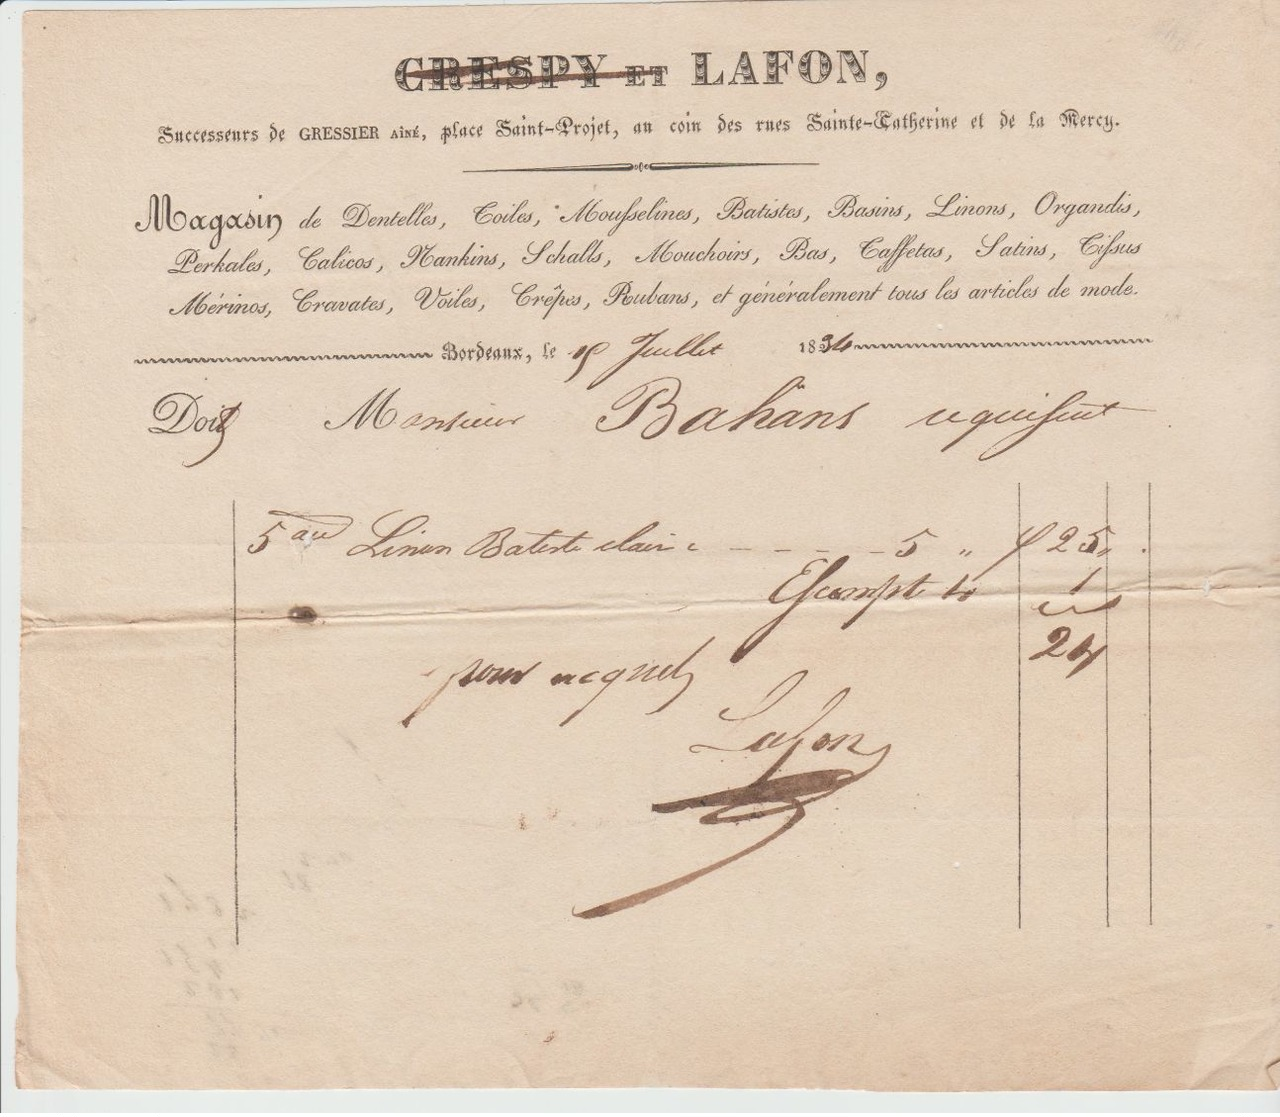 CRESPY ET LAFON,
Successeurs de GRESSIER AÎNÉ, place Saint-Projet, au coin des rues Sainte-Catherine et de la Mercy.
Magasin de Dentelles, Toiles, Mousselines, Batistes, Basins, Linons, Organdis,
Perkales, Calicos, Nankins, Schalls, Mouchoirs, Bas, Taffetas, Satins, Tissus
Mérinos, Cravates, Voiles, Crêpes, Rubans, et généralement tous les articles de mode.
Bordeaux, le Juillet 1834
Doit Monsieur Bahans
5 Linon Batiste claire 5 " f 25 "
Escompte 1
24
pour acquit
Lafon